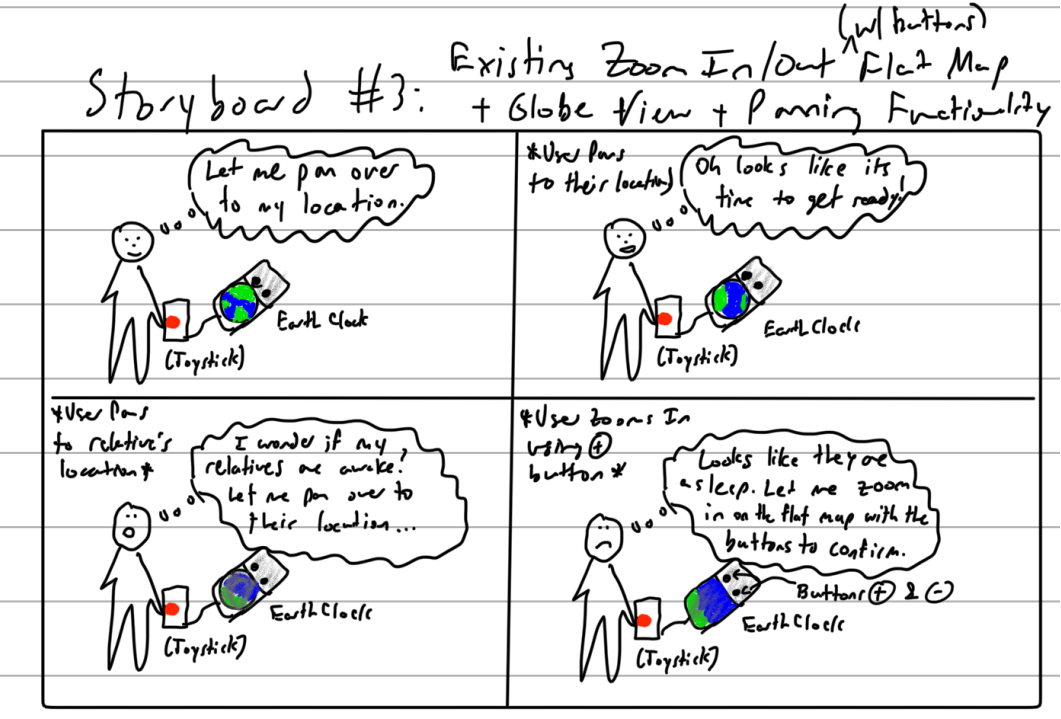 Storyboard #3: Existing Zoom In/Out Flat Map
(w/ buttons)
+ Globe View + Panning Functionality
Let me pan over
to my location.
Earth Clock
(Joystick)
*User Pans
to their location)
Oh looks like its
time to get ready!
Earth Clock
(Joystick)
*User Pans
to relative's
location*
I wonder if my
relatives are awake?
Let me pan over to
their location...
Earth Clock
(Joystick)
*User Zooms In
using +
button*
Looks like they are
asleep. Let me zoom
in on the flat map with the
buttons to confirm.
Buttons + & -
Earth Clock
(Joystick)